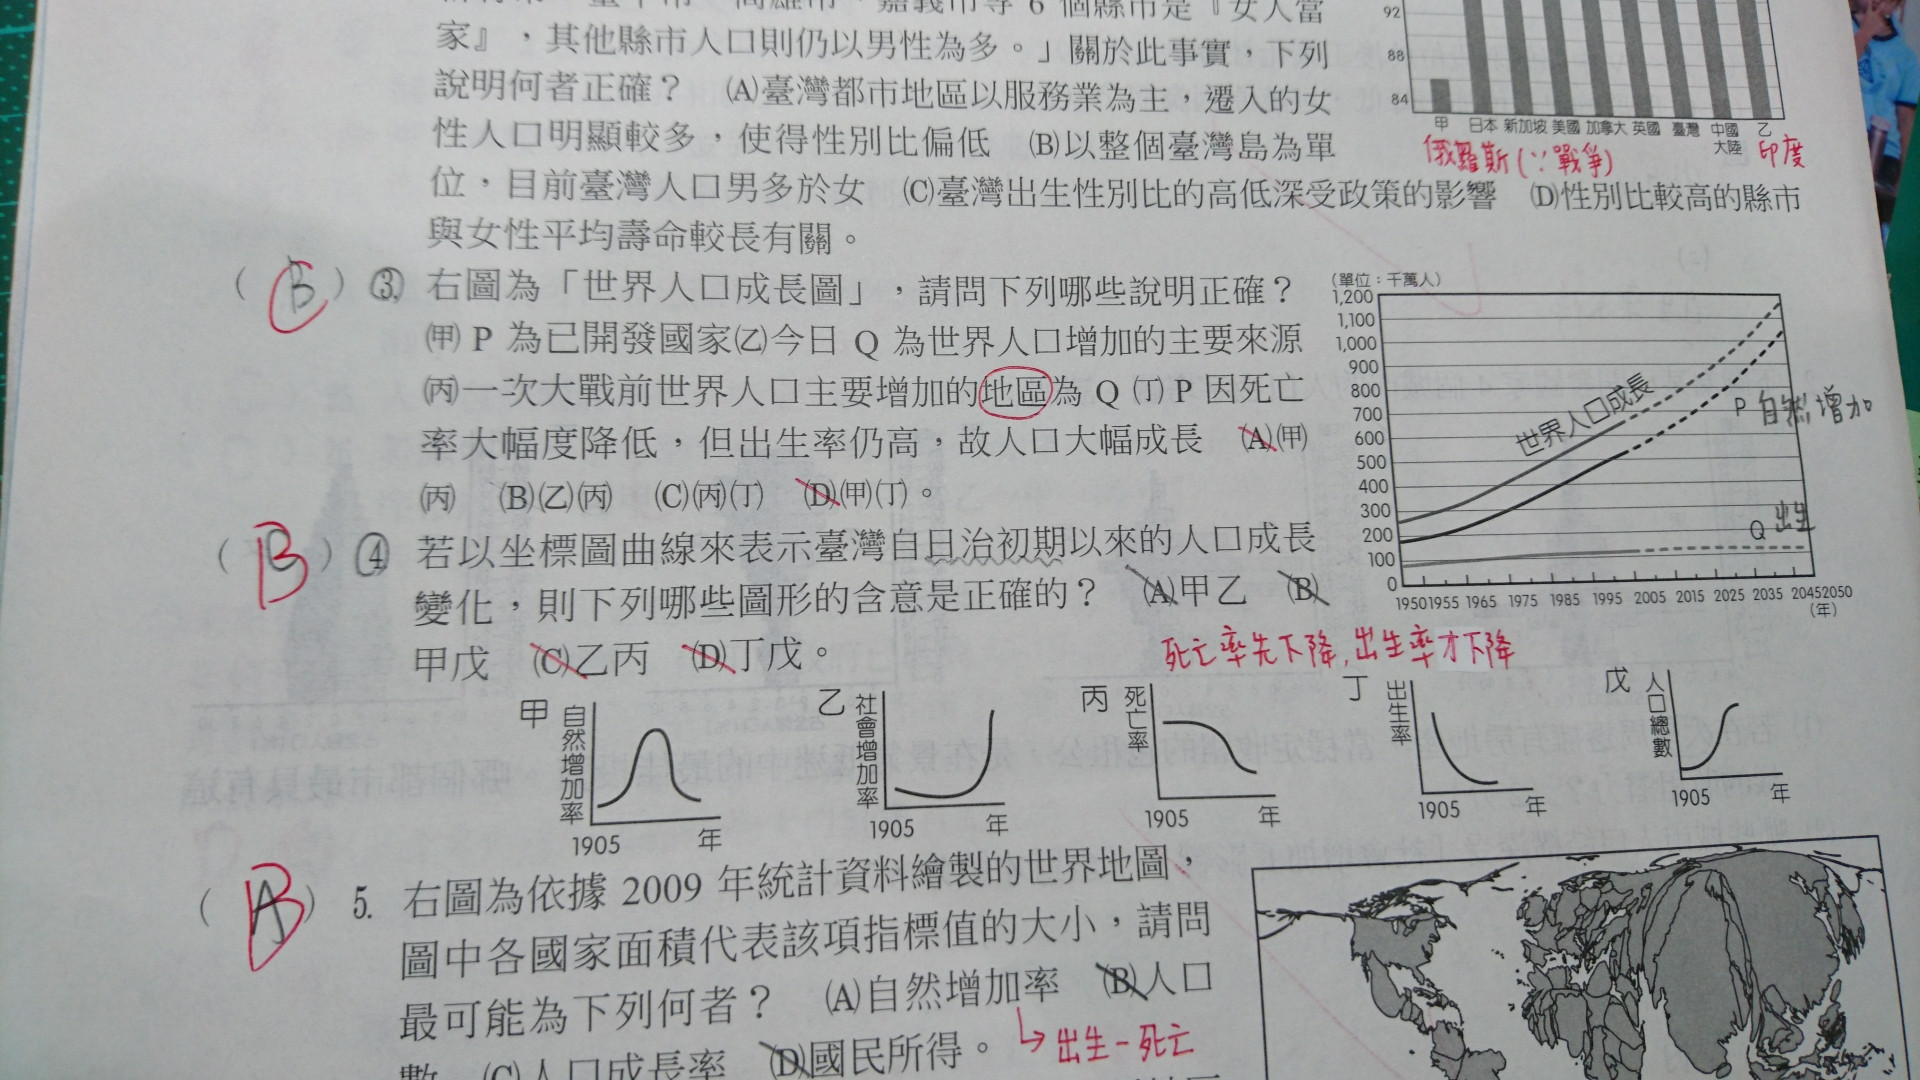 性人口明顯較多，使得性別比偏低 (B)以整個臺灣島為單
家』，其他縣市人口則仍以男性為多。」關於此事實，下列
說明何者正確？ (A)臺灣都市地區以服務業為主，遷入的女
位，目前臺灣人口男多於女 (C)臺灣出生性別比的高低深受政策的影響 (D)性別比較高的縣市
與女性平均壽命較長有關。
92
88
84
甲 日本 新加坡 美國 加拿大 英國 臺灣 中國大陸 乙
俄羅斯(∵戰爭) 印度
( B ) ③ 右圖為「世界人口成長圖」，請問下列哪些說明正確？
(甲) P 為已開發國家(乙)今日 Q 為世界人口增加的主要來源
(丙)一次大戰前世界人口主要增加的地區為 Q (丁) P 因死亡
率大幅度降低，但出生率仍高，故人口大幅成長 (A)(甲)
(丙) (B)(乙)(丙) (C)(丙)(丁) (D)(甲)(丁)。
(單位：千萬人)
1,200
1,100
1,000
900
800
700
600
500
400
300
200
100
0
世界人口成長
P 自然增加
Q 出生
1950 1955 1965 1975 1985 1995 2005 2015 2025 2035 2045 2050
(年)
( B ) ④ 若以坐標圖曲線來表示臺灣自日治初期以來的人口成長
變化，則下列哪些圖形的含意是正確的？ (A)甲乙 (B)
甲戊 (C)乙丙 (D)丁戊。
死亡率先下降，出生率才下降
甲 自然增加率 1905 年
乙 社會增加率 1905 年
丙 死亡率 1905 年
丁 出生率 1905 年
戊 人口總數 1905 年
( B ) 5. 右圖為依據 2009 年統計資料繪製的世界地圖，
圖中各國家面積代表該項指標值的大小，請問
最可能為下列何者？ (A)自然增加率 (B)人口
數 (C)人口成長率 (D)國民所得。
↳出生-死亡